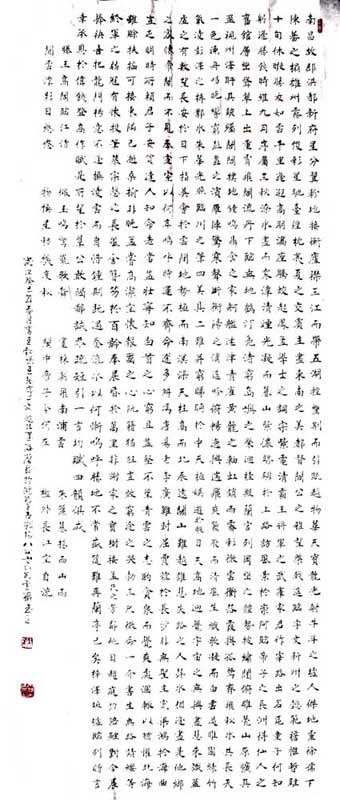 南昌故郡洪都新府星分翼軫地接衡廬襟三江而帶五湖控蠻荊而引甌越物華天寶龍光射斗牛之墟人傑地靈徐孺下
陳蕃之榻雄州霧列俊彩星馳臺隍枕夷夏之交賓主盡東南之美都督閻公之雅望棨戟遙臨宇文新州之懿範襜帷暫駐
十旬休暇勝友如雲千里逢迎高朋滿座騰蛟起鳳孟學士之詞宗紫電清霜王將軍之武庫家君作宰路出名區童子何知
躬逢勝餞時維九月序屬三秋潦水盡而寒潭清煙光凝而暮山紫儼驂騑於上路訪風景於崇阿臨帝子之長洲得仙人之
舊館層巒聳翠上出重霄飛閣流丹下臨無地鶴汀鳧渚窮島嶼之縈迴桂殿蘭宮列岡巒之體勢披繡闥俯雕甍山原曠其
盈視川澤盱其駭矚閭閻撲地鐘鳴鼎食之家舸艦迷津青雀黃龍之軸虹銷雨霽彩徹雲衢落霞與孤鶩齊飛秋水共長天
一色漁舟唱晚響窮彭蠡之濱雁陣驚寒聲斷衡陽之浦遙吟俯暢逸興遄飛爽籟發而清風生纖歌凝而白雲遏睢園綠竹
氣凌彭澤之樽鄴水朱華光照臨川之筆四美具二難并窮睇眄於中天極娛遊於暇日天高地迥覺宇宙之無窮興盡悲來識盈
虛之有數望長安於日下指吳會於雲間地勢極而南溟深天柱高而北辰遠關山難越誰悲失路之人萍水相逢盡是他鄉
之客懷帝閽而不見奉宣室以何年嗚呼時運不齊命途多舛馮唐易老李廣難封屈賈誼於長沙非無聖主竄梁鴻於海曲
豈乏明時所賴君子安貧達人知命老當益壯寧知白首之心窮且益堅不墜青雲之志酌貪泉而覺爽處涸轍以猶歡北海
雖賒扶搖可接東隅已逝桑榆非晚孟嘗高潔空懷報國之心阮籍猖狂豈效窮途之哭勃三尺微命一介書生無路請纓等
終軍之弱冠有懷投筆慕宗愨之長風舍簪笏於百齡奉晨昏於萬里非謝家之寶樹接孟氏之芳鄰他日趨庭叨陪鯉對今晨
捧袂喜托龍門楊意不逢撫凌雲而自惜鍾期既遇奏流水以何慚嗚呼勝地不常盛筵難再蘭亭已矣梓澤坵墟臨別贈言
幸承恩於偉餞登高作賦是所望於群公敢竭鄙誠恭疏短引一言均賦四韻俱成
滕王高閣臨江渚 佩玉鳴鸞罷歌舞 畫棟朝飛南浦雲 朱簾暮捲西山雨
閒雲潭影日悠悠 物換星移幾度秋 閣中帝子今何在 檻外長江空自流